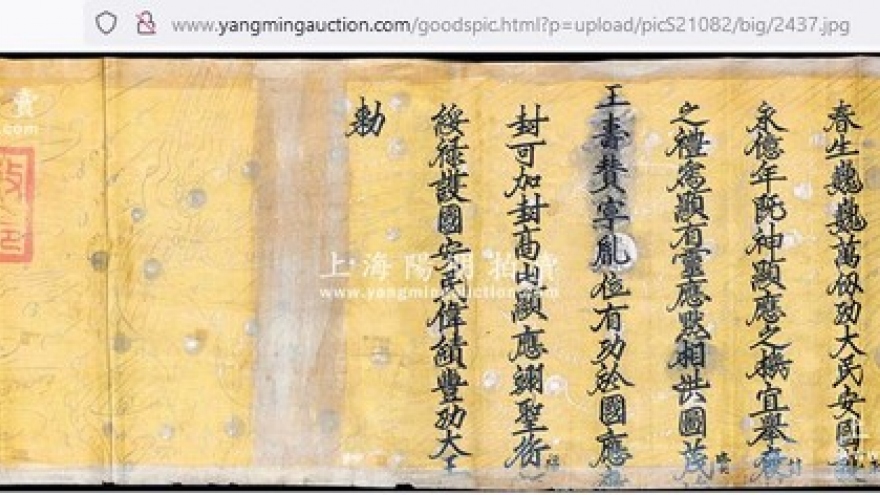 www.yangmingauction.com/goodspic.html?p=upload/picS21082/big/2437.jpg
春生巍巍萬仞功大民安國
永億年 神顯應之 宜舉
之禮為顯有靈應默相拱圖茂
王 贊 胤位有功於國應
封可加封高山顯應翊聖
綏祿護國安民偉績豐功大王
勅
上海陽明拍賣
www.yangmingauction.com
賣
.com